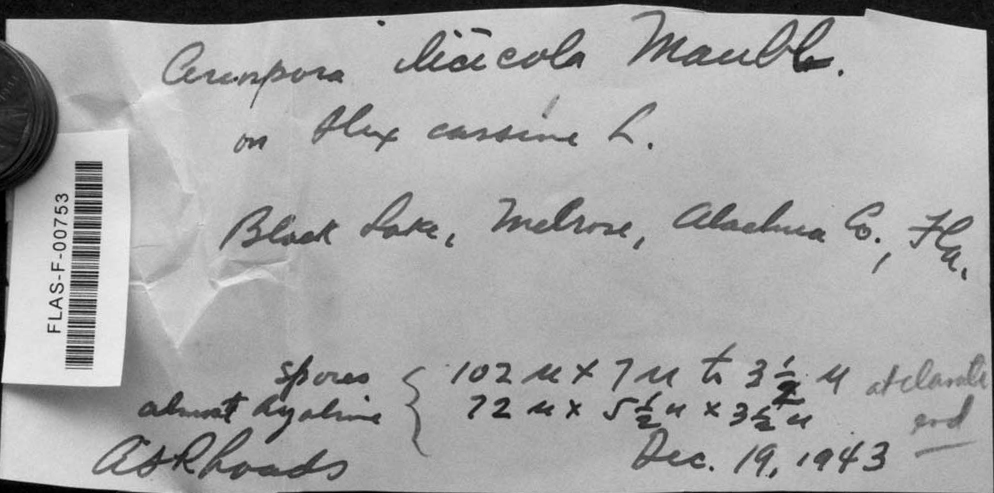 Cercospora ilicicola Maubl.
on Ilex cassine L.
Black Lake, Melrose, Alachua Co., Fla.
FLAS-F-00753
spores { 102 u x 7 u to 3 1/2 u at clavate
almost hyaline 72 u x 5 1/2 u x 3 1/2 u end
ASRhoads Dec. 19, 1943